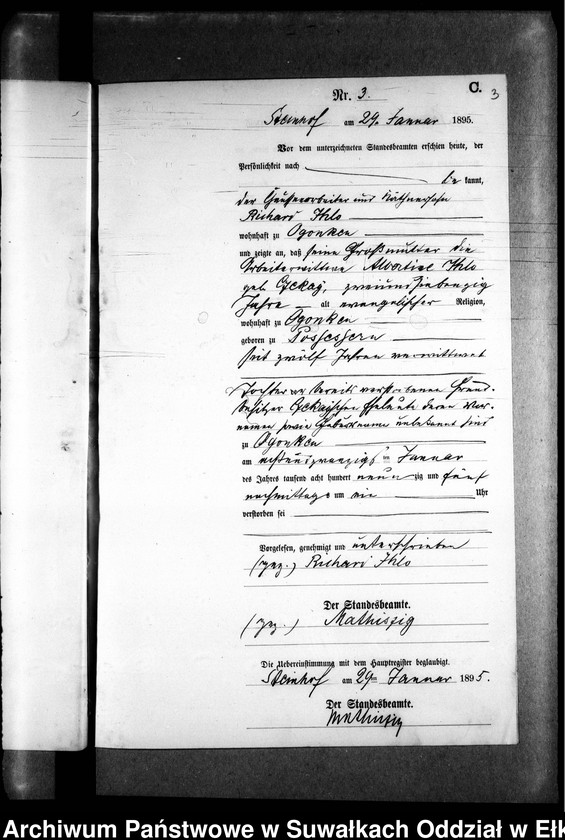 C.
Nr. 3. 3
Steinhof am 29. Januar 1895.
Vor dem unterzeichneten Standesbeamten erschien heute, der
Persönlichkeit nach
kannt,
der und Käthnersohn
Richard Ihlo
wohnhaft zu Ogonken
und zeigte an, daß seine Großmutter die
Arbeiterwittwe Albertine Ihlo
geb. zweiundsiebenzig
Jahre alt evangelischer Religion,
wohnhaft zu Ogonken
geboren zu Possessern
seit zwölf Jahren verwittwet
Tochter der bereits verstorbenen Grund-
besitzer Eheleute deren Vor-
namen sowie Geburtsname unbekannt sind
zu Ogonken
am achtundzwanzigsten Januar
des Jahres tausend acht hundert neunzig und fünf
nachmittags um ein Uhr
verstorben sei
Vorgelesen, genehmigt und unterschrieben
(gez.) Richard Ihlo
Der Standesbeamte.
(gez.) Mathiszig
Die Uebereinstimmung mit dem Hauptregister beglaubigt.
Steinhof am 29ten Januar 1895.
Der Standesbeamte.
Mathiszig
Archiwum Państwowe w Suwałkach Oddział w Ełk